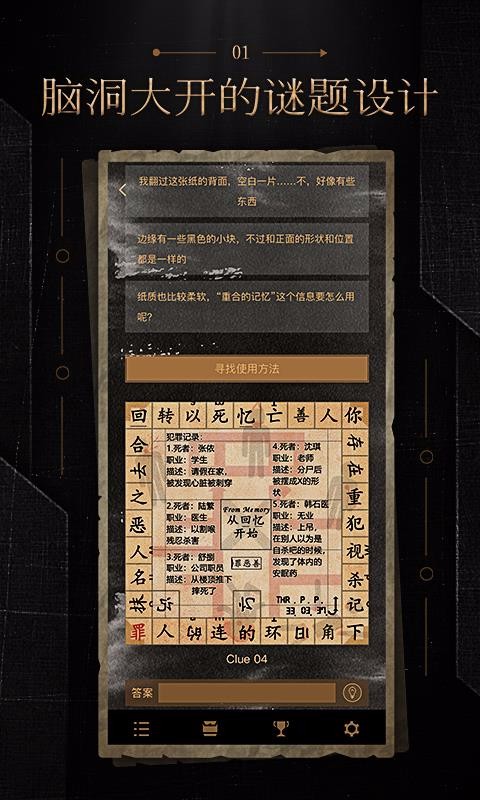 01
脑洞大开的谜题设计
我翻过这张纸的背面，空白一片……不，好像有些
东西
边缘有一些黑色的小块，不过和正面的形状和位置
都是一样的
纸质也比较柔软，“重合的记忆”这个信息要怎么用
呢？
寻找使用方法
回转以死忆亡善人你
合
去
之
恶
人
名
存
在
重
犯
视
杀
记
犯罪记录：
1.死者：张依
职业：学生
描述：请假在家，
被发现心脏被刺穿
2.死者：陆繁
职业：医生
描述：以割喉
残忍杀害
3.死者：舒捌
职业：公司职员
描述：从楼顶推下
摔死了
4.死者：沈琪
职业：老师
描述：分尸后
被摆成X的形
状
5.死者：韩石医
职业：无业
描述：上吊，
在别人以为是
自杀吧的时候，
发现了体内的
安眠药
From Memory
从回忆
开始
罪恶善
THR . P . P .
罪人的连的环日角下
Clue 04
答案